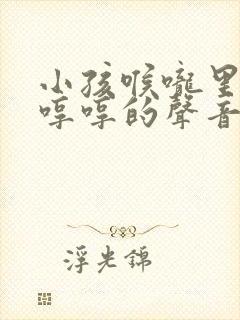 小孩喉嚨里
哼哼的聲音
浮光錦